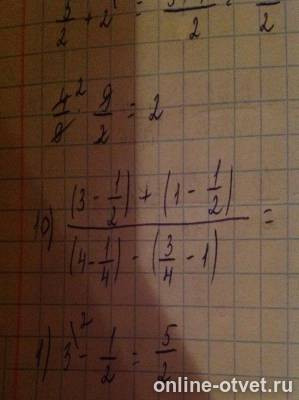 3/2 + 2 = /2 = /2
4/9 · 9/2 = 2
10) ((3 - 1/2) + (1 - 1/2)) / ((4 - 1/4) - (3/4 - 1)) =
1) 3 - 1/2 = 5/2
online-otvet.ru